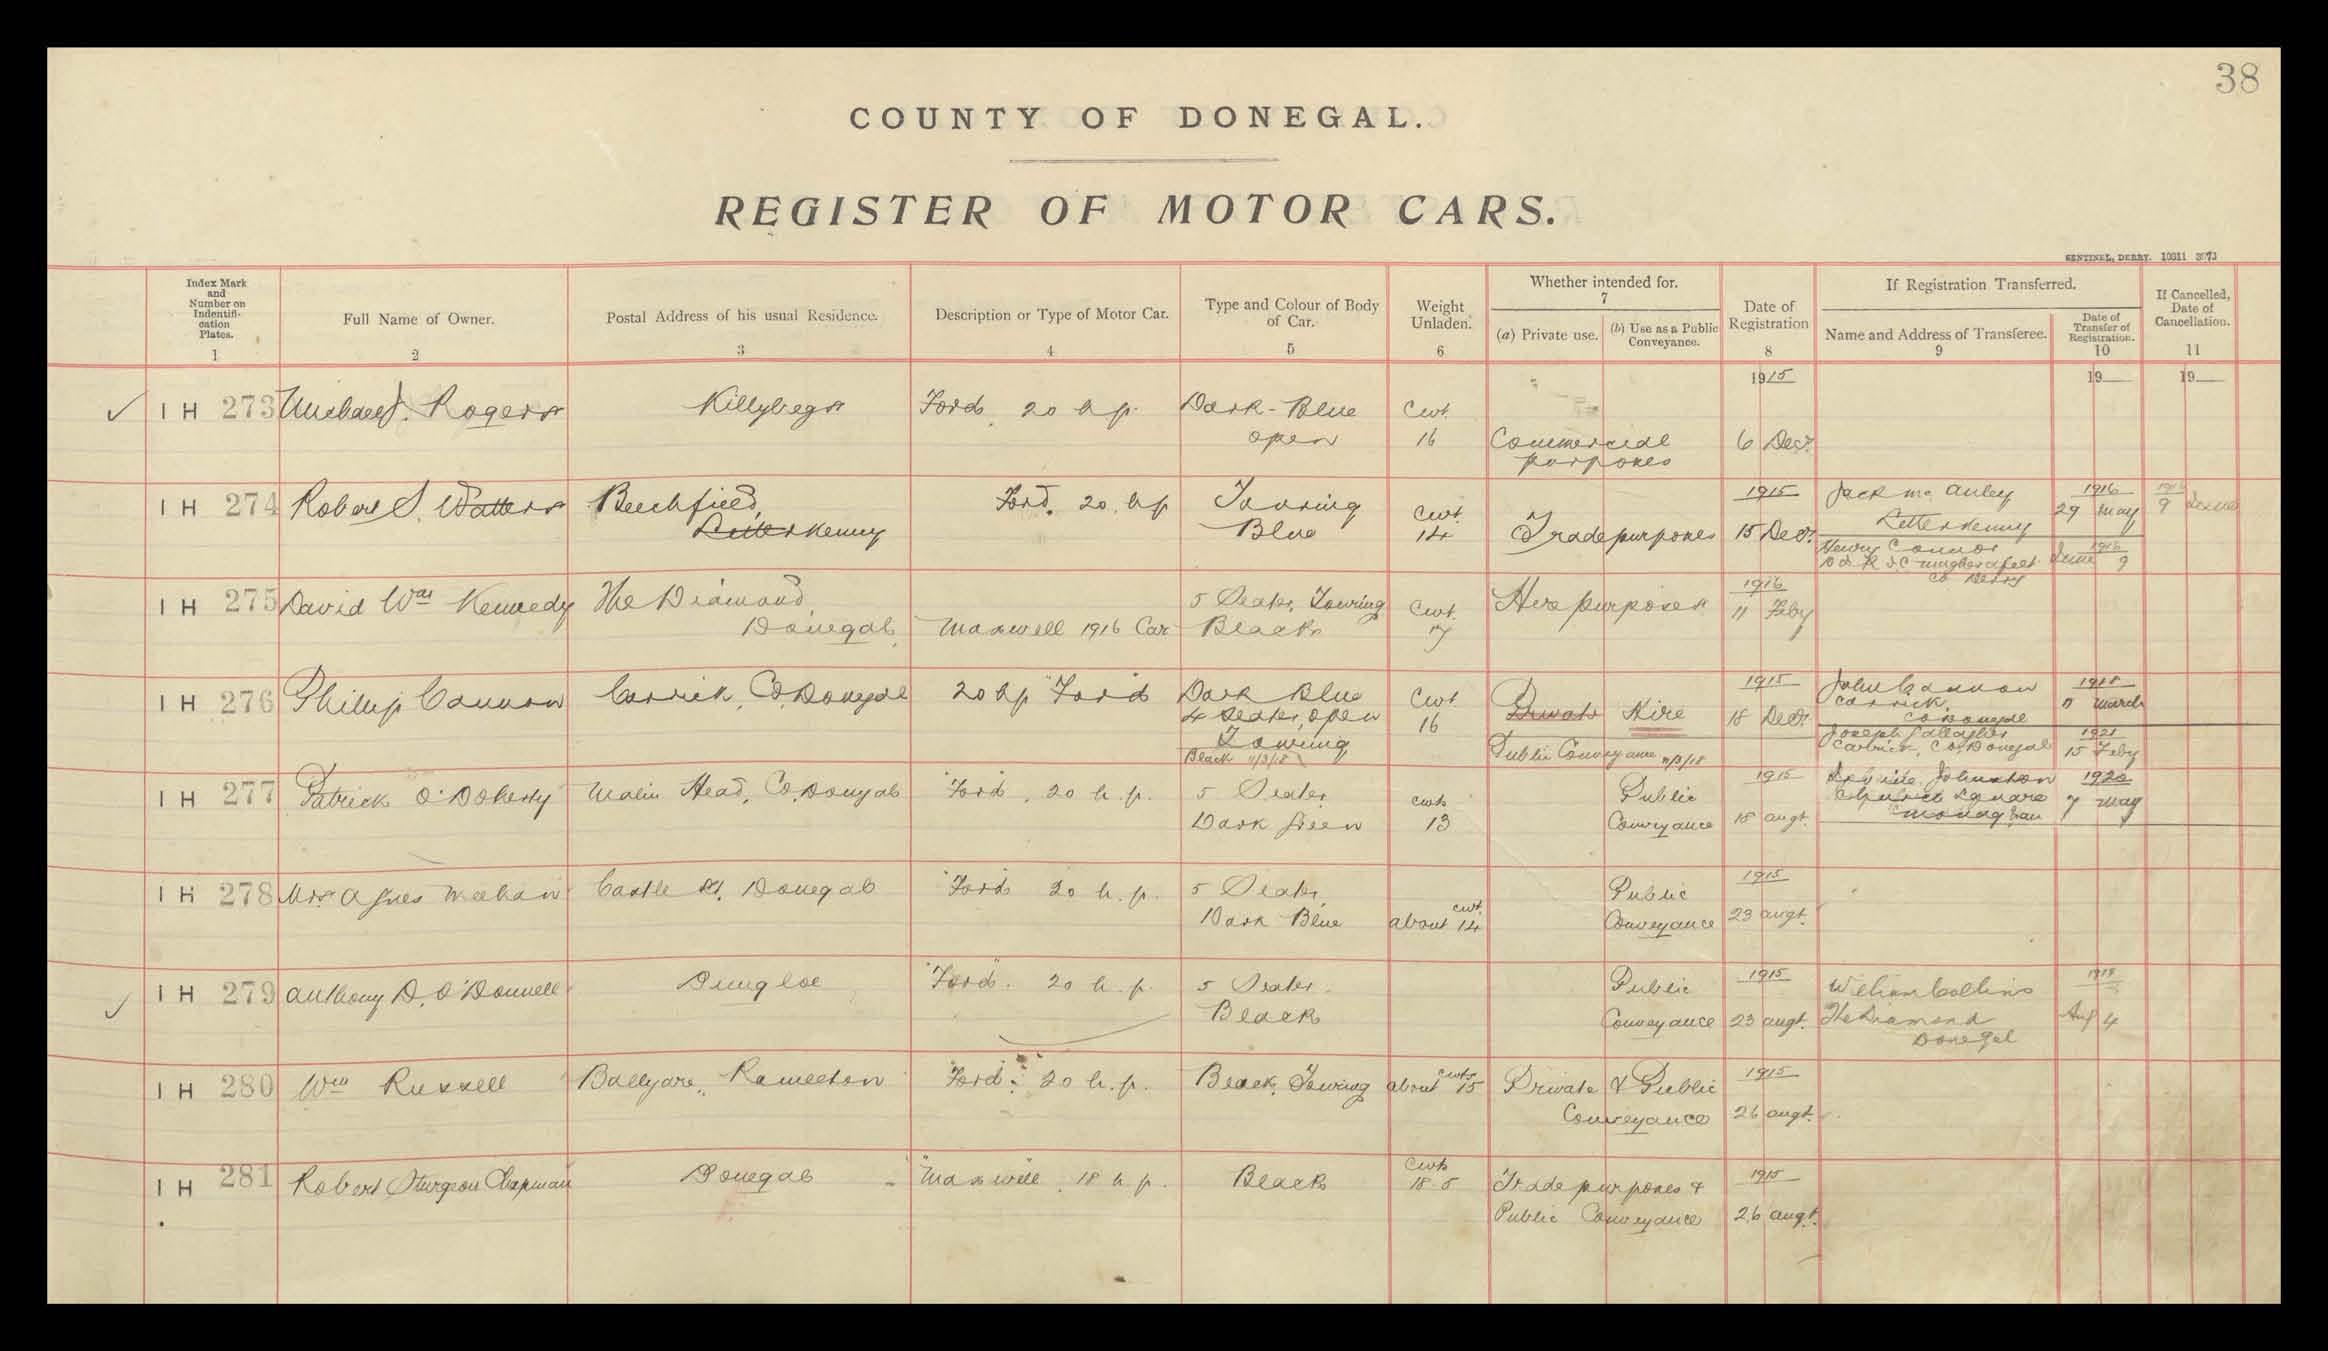 38
COUNTY OF DONEGAL.
REGISTER OF MOTOR CARS.
SENTINEL, DERRY. 10311
Index Mark and Number on Indentifi-cation Plates. 1
Full Name of Owner. 2
Postal Address of his usual Residence. 3
Description or Type of Motor Car. 4
Type and Colour of Body of Car. 5
Weight Unladen. 6
Whether intended for. 7
(a) Private use.
(b) Use as a Public Conveyance.
Date of Registration 8
If Registration Transferred.
Name and Address of Transferee. 9
Date of Transfer of Registration. 10
If Cancelled, Date of Cancellation. 11
1915 19 19
✓ I H 273 Michael J. Rogers Killybegs Ford 20 h p. Dark-Blue Cwt.
open 16 Commercial 6 Decr.
purposes
I H 274 Robert S. Watters Beechfield, Ford. 20. h p Touring Cwt. 1915 Jack Mc Auley 1916
Letterkenny Blue 14 Trade purposes 15 Decr. Letterkenny 29 May 9
Henry Connor 1916
D I R I C Magherafelt June 9
Co Derry
I H 275 David Wm Kennedy The Diamond, 5 Seater, Touring Cwt. Hire purposes 1916
Donegal Maxwell 1916 Car Black 17 11 Feby
I H 276 Philip Cannon Carrick, Co. Donegal 20 h p "Ford Dark Blue Cwt. Private Hire 1915 John Cannon 1918
4 Seater, open 16 18 Decr. Carrick, March
Touring Co Donegal
Black 11/3/18 Public Conveyance 11/3/18 Joseph Gallagher 1921
Carrick, Co. Donegal 15 Feby
I H 277 Patrick O'Doherty Malin Head, Co. Donegal "Ford. 20 h. p. 5 Seater cwts Public 1915 Johnston 1920
Dark Green 13 Conveyance 18 augt. Church Square 7 May
Monaghan
I H 278 Mrs Agnes Meehan Castle St, Donegal "Ford 20 h. p. 5 Seater, Public 1915
Dark Blue about 14 cwt. Conveyance 23 augt.
✓ I H 279 Anthony D. O'Donnell Dungloe "Ford". 20 h. p. 5 Seater. Public 1915 William Collins
Black Conveyance 23 augt. The Diamond Aug 4
Donegal
I H 280 Wm Russell Ballyare, Ramelton "Ford. 20 h. p. Black, Touring about 15 cwts Private & Public 1915
Conveyance 26 augt.
I H 281 Robert Sturgeon Chapman Donegal "Maxwell 18 h. p. Black Cwts 18.5 Trade purposes & 1915
Public Conveyance 26 augt.